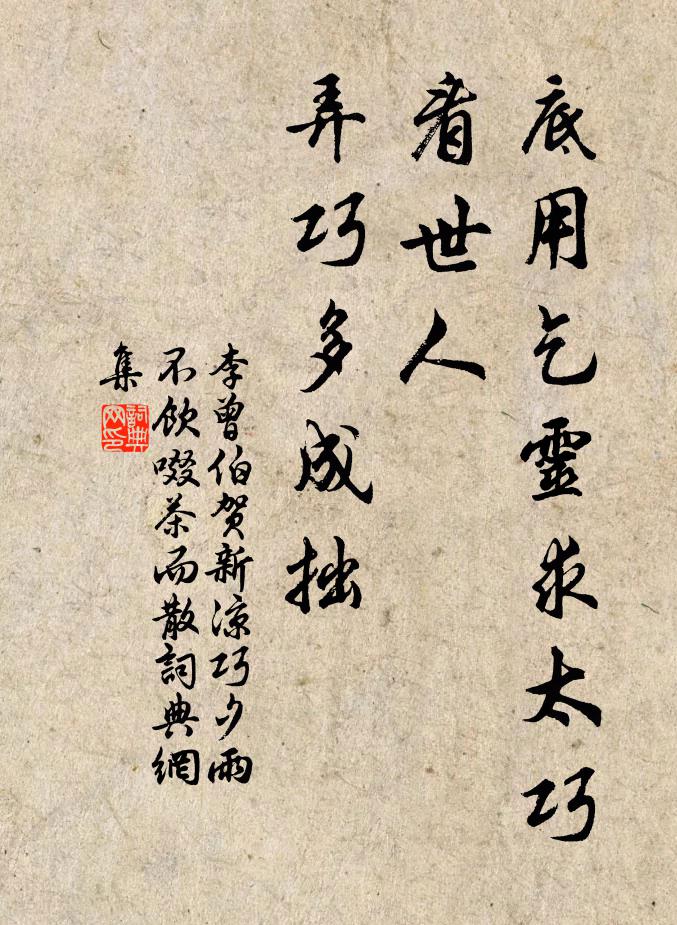 底用乞靈求太巧
看世人
弄巧多成拙
李曾伯賀新涼巧夕雨
不飲啜茶而散詞典網
集
詞典
网印